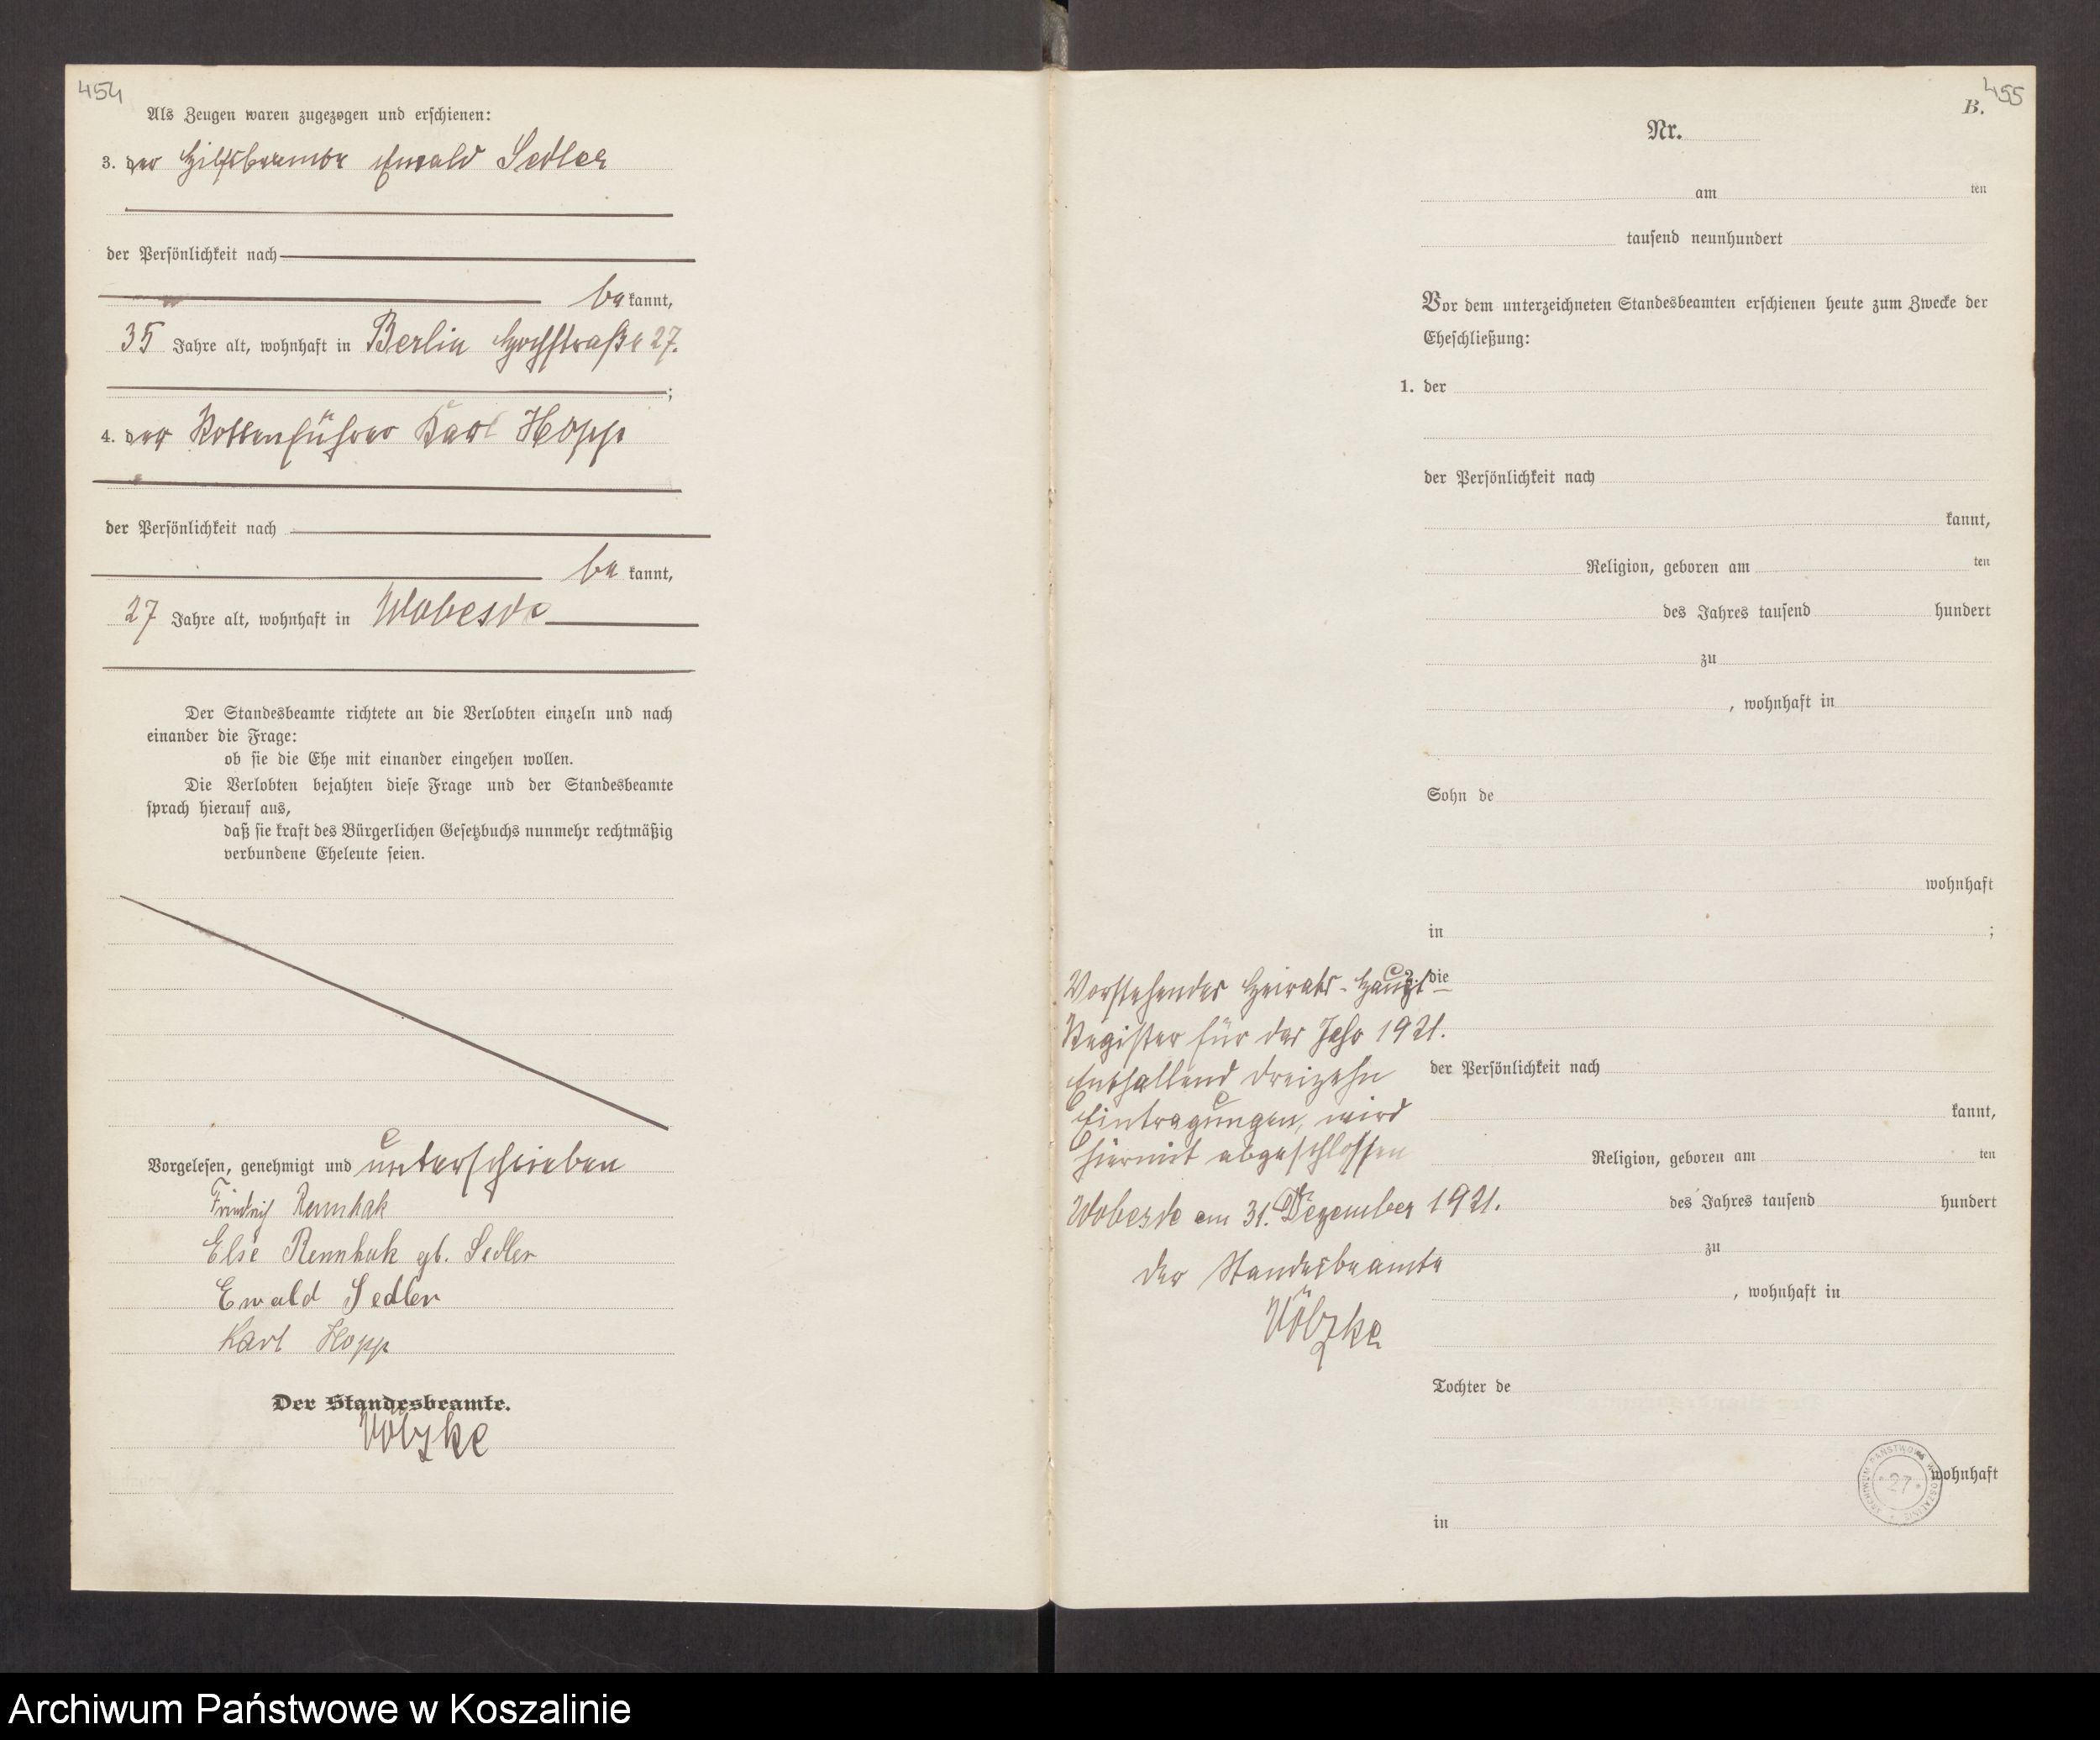 454
Als Zeugen waren zugezogen und erschienen:
3. der Hilfsbremser Ewald Sedler
der Persönlichkeit nach
be kannt,
35 Jahre alt, wohnhaft in Berlin Hochstraße 27.
;
4. der Rottenführer Karl Hopp
der Persönlichkeit nach
be kannt,
27 Jahre alt, wohnhaft in Wobesde
Der Standesbeamte richtete an die Verlobten einzeln und nach
einander die Frage:
ob sie die Ehe mit einander eingehen wollen.
Die Verlobten bejahten diese Frage und der Standesbeamte
sprach hierauf aus,
daß sie kraft des Bürgerlichen Gesetzbuchs nunmehr rechtmäßig
verbundene Eheleute seien.
Vorgelesen, genehmigt und unterschrieben
Friedrich Rennhak
Else Rennhak gb. Sedler
Ewald Sedler
Karl Hopp
Der Standesbeamte.
Völzke
455
B.
Nr.
am ten
tausend neunhundert
Vor dem unterzeichneten Standesbeamten erschienen heute zum Zwecke der
Eheschließung:
1. der
der Persönlichkeit nach
kannt,
Religion, geboren am ten
des Jahres tausend hundert
zu
, wohnhaft in
Sohn de
wohnhaft
in ;
2. die
der Persönlichkeit nach
kannt,
Religion, geboren am ten
des Jahres tausend hundert
zu
, wohnhaft in
Tochter de
wohnhaft
in
Vorstehendes Heirats-Haupt
Register für das Jahr 1921.
Enthaltend dreizehn
Eintragungen, wird
hiermit abgeschlossen
Wobesde am 31. Dezember 1921.
Der Standesbeamte
Völzke
ARCHIWUM PAŃSTWOWE W KOSZALINIE
27
Archiwum Państwowe w Koszalinie